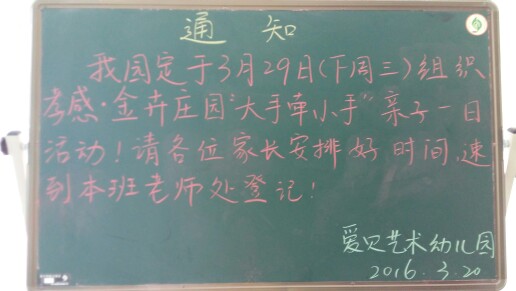 通知
我园定于3月29日(下周三)组织
孝感·金卉庄园"大手牵小手"亲子一日
活动!请各位家长安排好时间,速
到本班老师处登记!
爱贝艺术幼儿园
2016.3.20